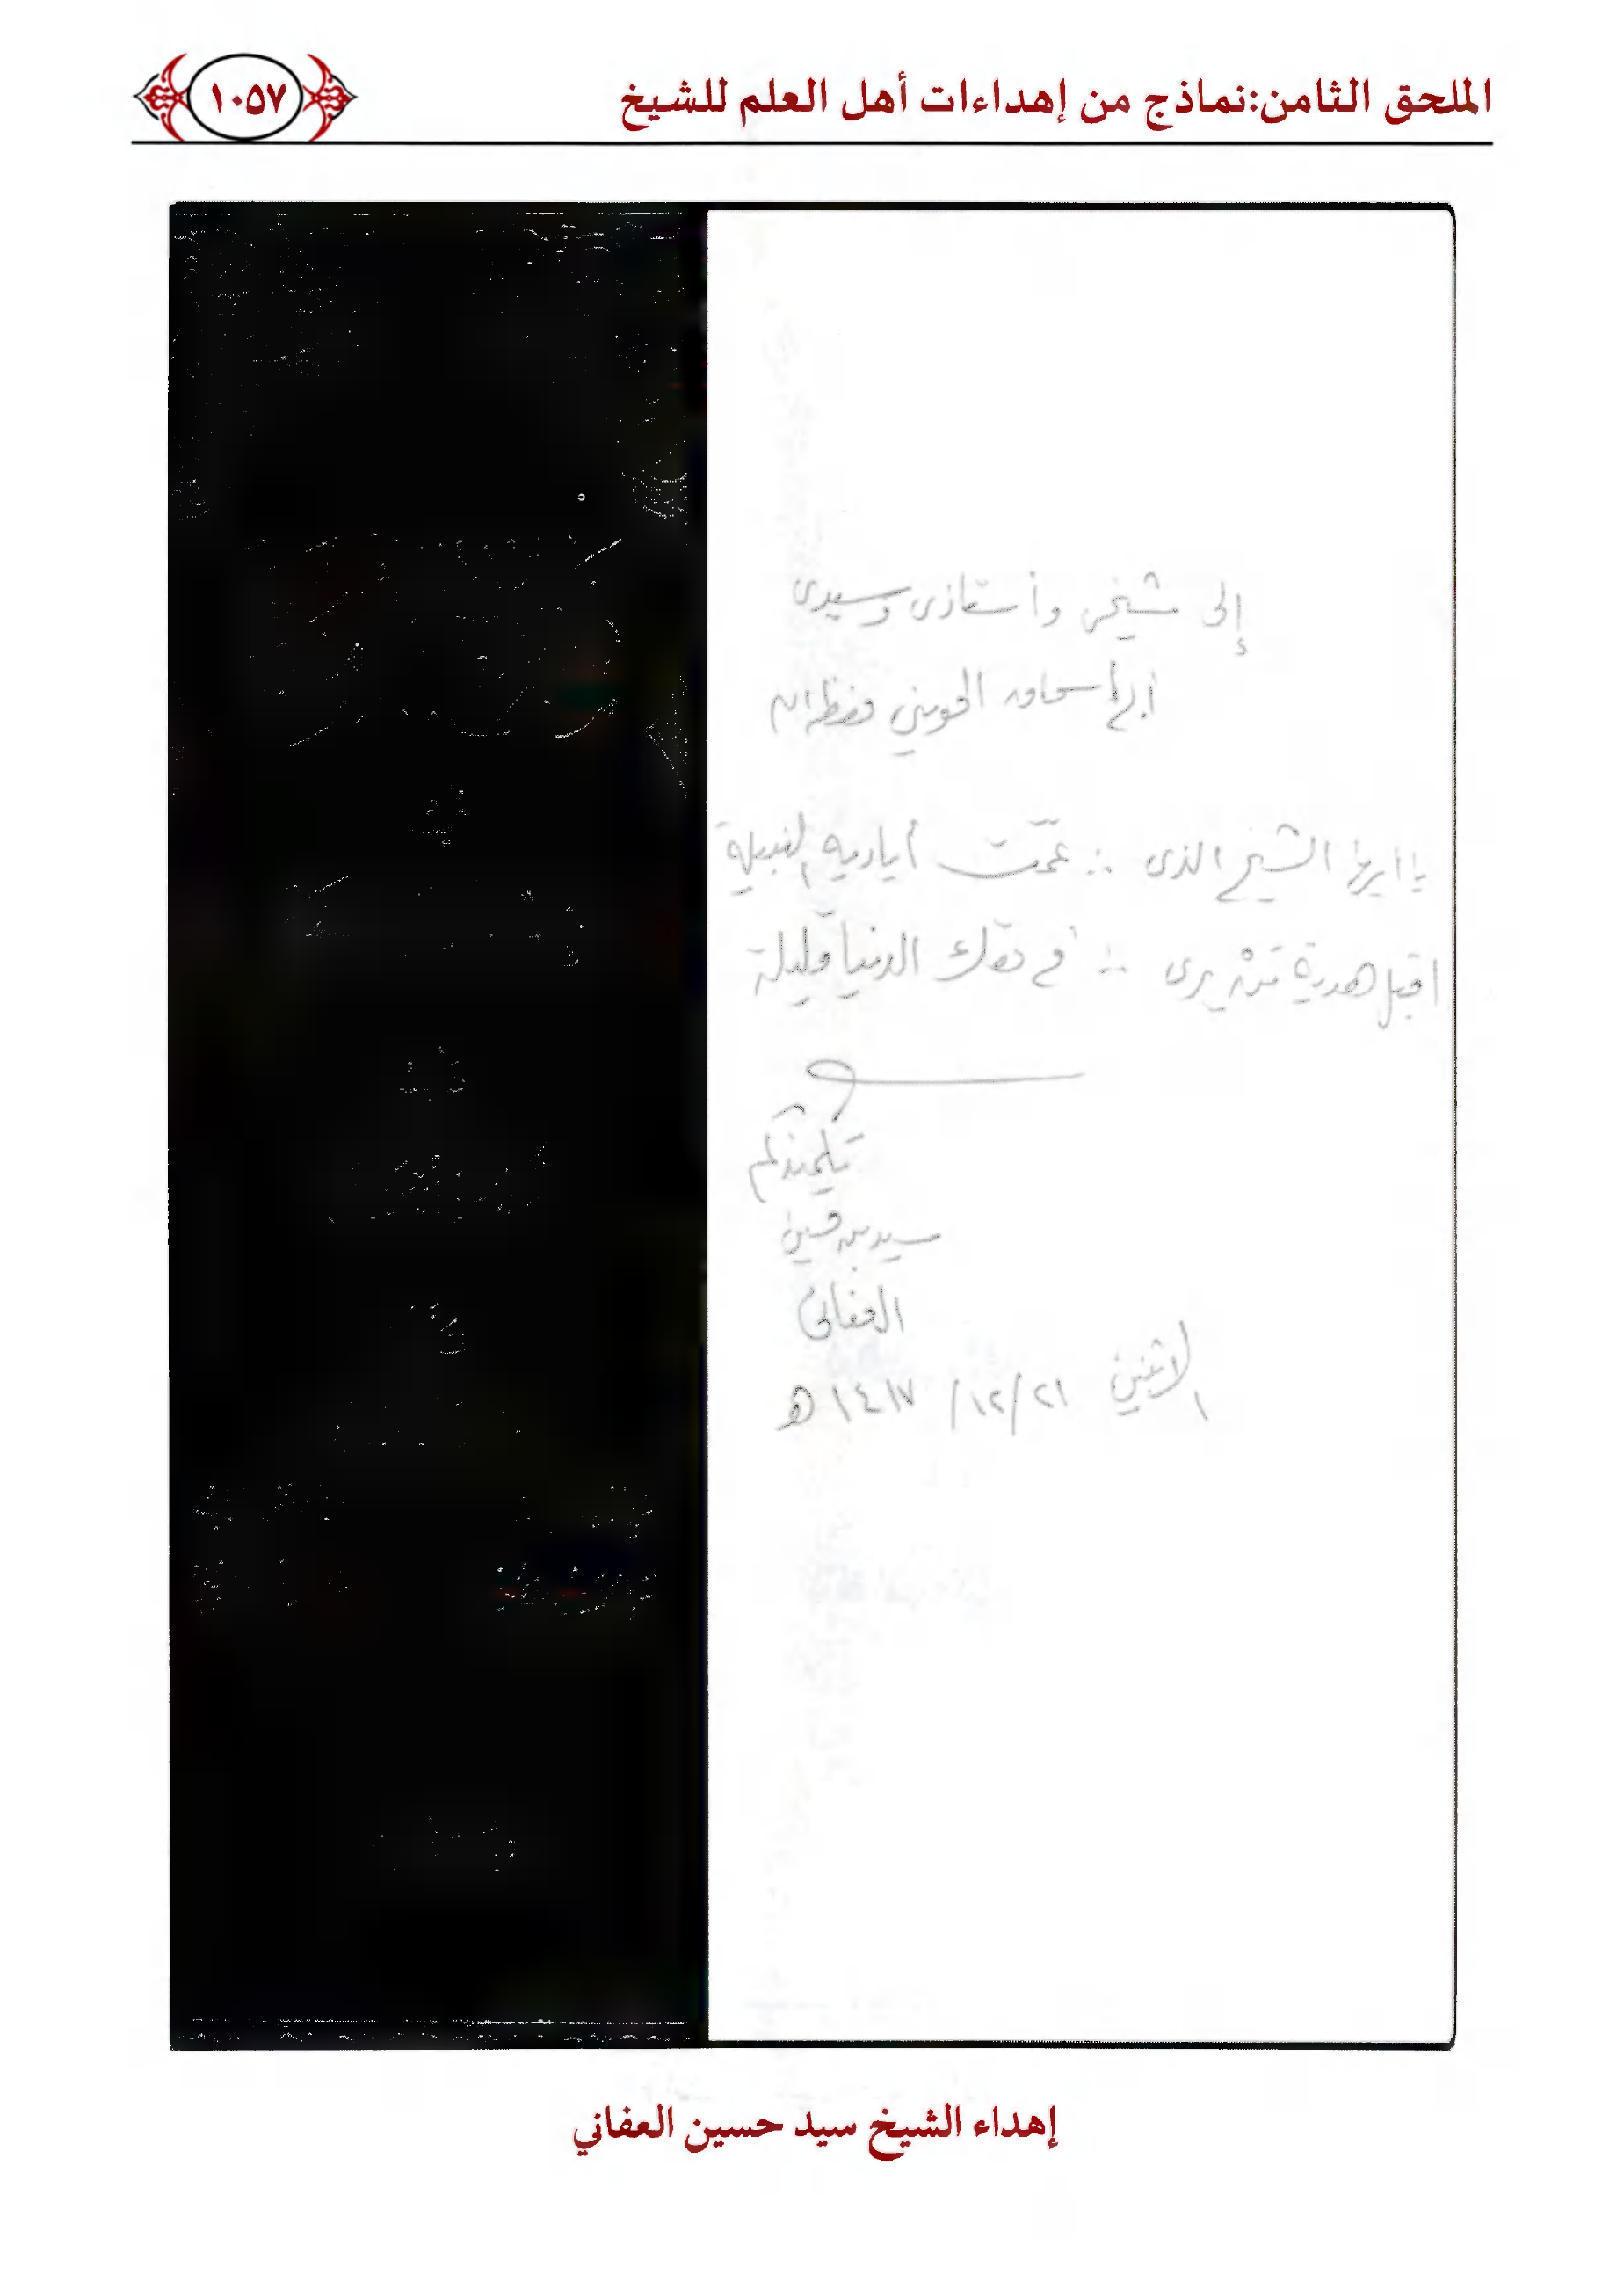 الملحق الثامن:نماذج من إهداءات أهل العلم للشيخ
١٠٥٧
إلى شيخي وأستاذى وسيدى
أبي إسحاق الحويني حفظه الله
يا أيها الشيخ الذى ∴ عمّت أياديه النبيلة
اقبل هدية مَنْ يرى ∴ في حقك الدنيا قليلة
تلميذكم
سيد بن حسين
العفاني
الاثنين ٢١/١٢/١٤١٧ هـ
إهداء الشيخ سيد حسين العفاني